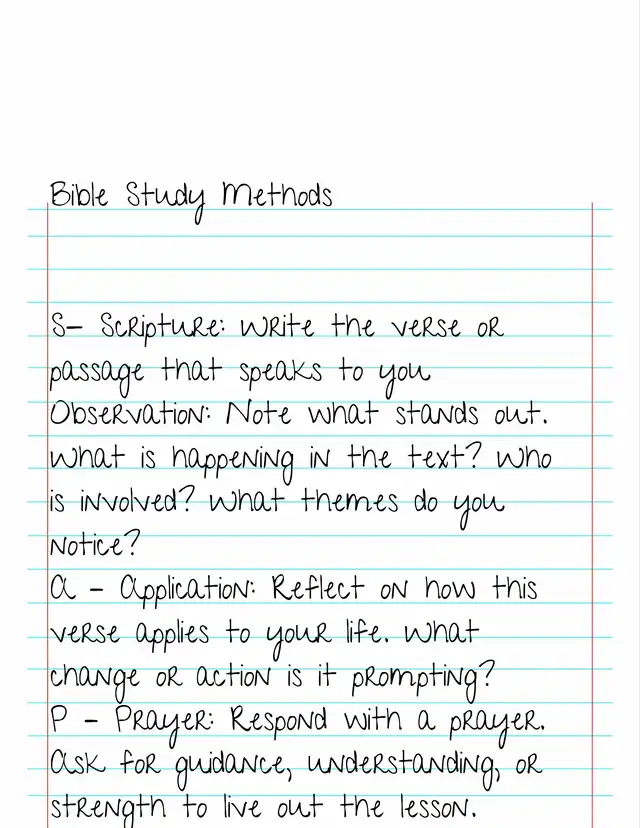 Bible Study Methods
S- Scripture: Write the verse or
passage that speaks to you
Observation: Note what stands out.
What is happening in the text? Who
is involved? What themes do you
notice?
A - Application: Reflect on how this
verse applies to your life. What
change or action is it prompting?
P - Prayer: Respond with a prayer.
Ask for guidance, understanding, or
strength to live out the lesson.